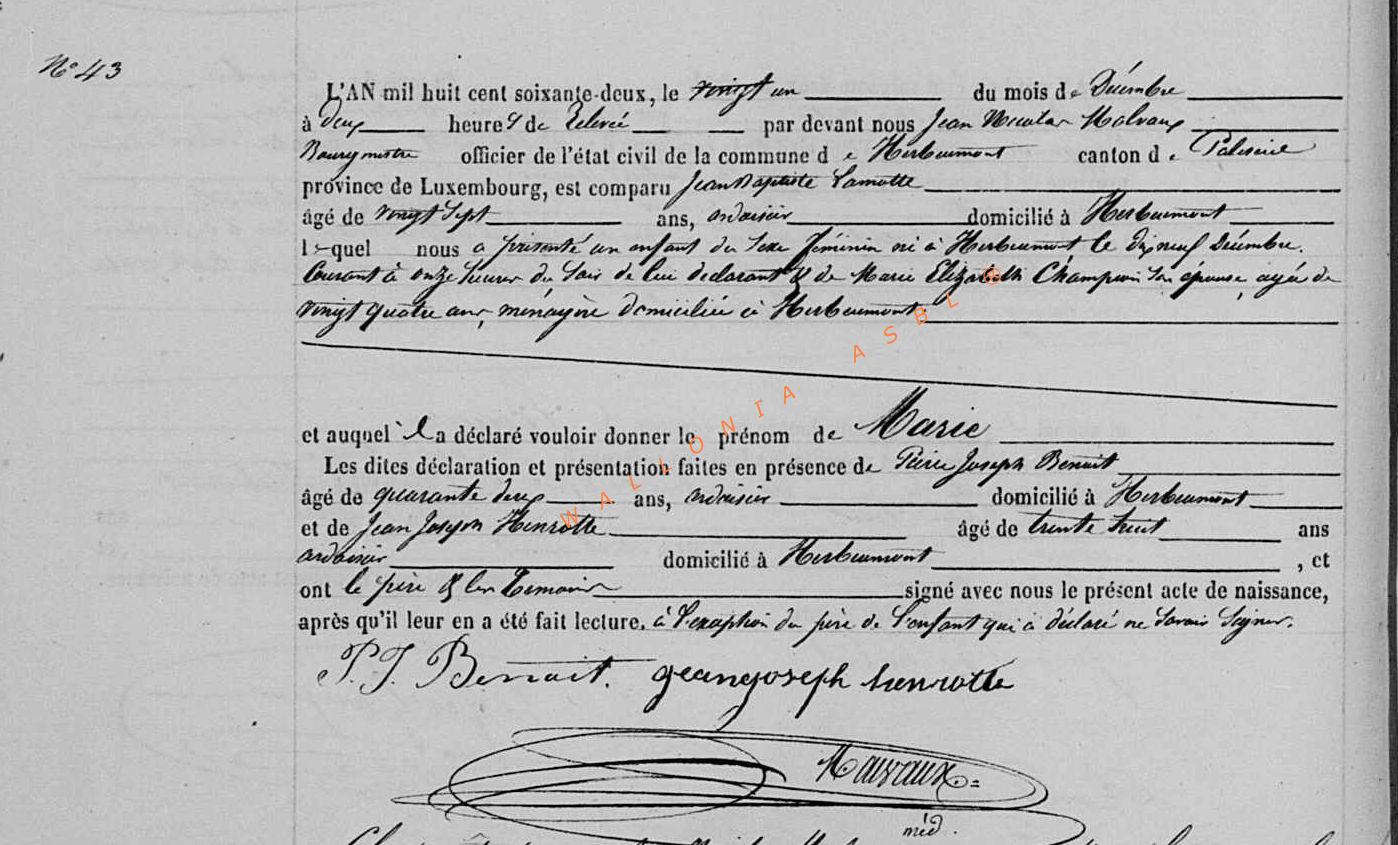 N° 43
L'AN mil huit cent soixante-deux, le vingt un du mois de Décembre
à deux heures de Relevé par devant nous Jean Nicolas Malvaux
Bourgmestre officier de l'état civil de la commune de Herbeumont canton de Paliseul
province de Luxembourg, est comparu Jean Baptiste Lamotte
âgé de vingt Sept ans, ardoisier domicilié à Herbeumont
lequel nous a présenté un enfant du Sexe féminin né à Herbeumont le dixneuf Décembre.
Courant à onze heures du Soir de lui declarant & de Marie Elizabeth Champion Son épouse, agée de
vingt quatre ans, ménagère domiciliée à Herbeumont
et auquel il a déclaré vouloir donner le prénom de Marie
Les dites déclaration et présentation faites en présence de Pierre Joseph Benoit
âgé de quarante deux ans, ardoisier domicilié à Herbeumont
et de Jean Joseph Henrotte âgé de trente huit ans
ardoisier domicilié à Herbeumont, et
ont le père & les temoins signé avec nous le présent acte de naissance,
après qu'il leur en a été fait lecture. à l'exception du père de l'enfant qui à déclaré ne Savoir Signer.
P. J. Benoit. jeanjoseph henrotte
Malvaux
méd.
WALLONIA ASBL ©